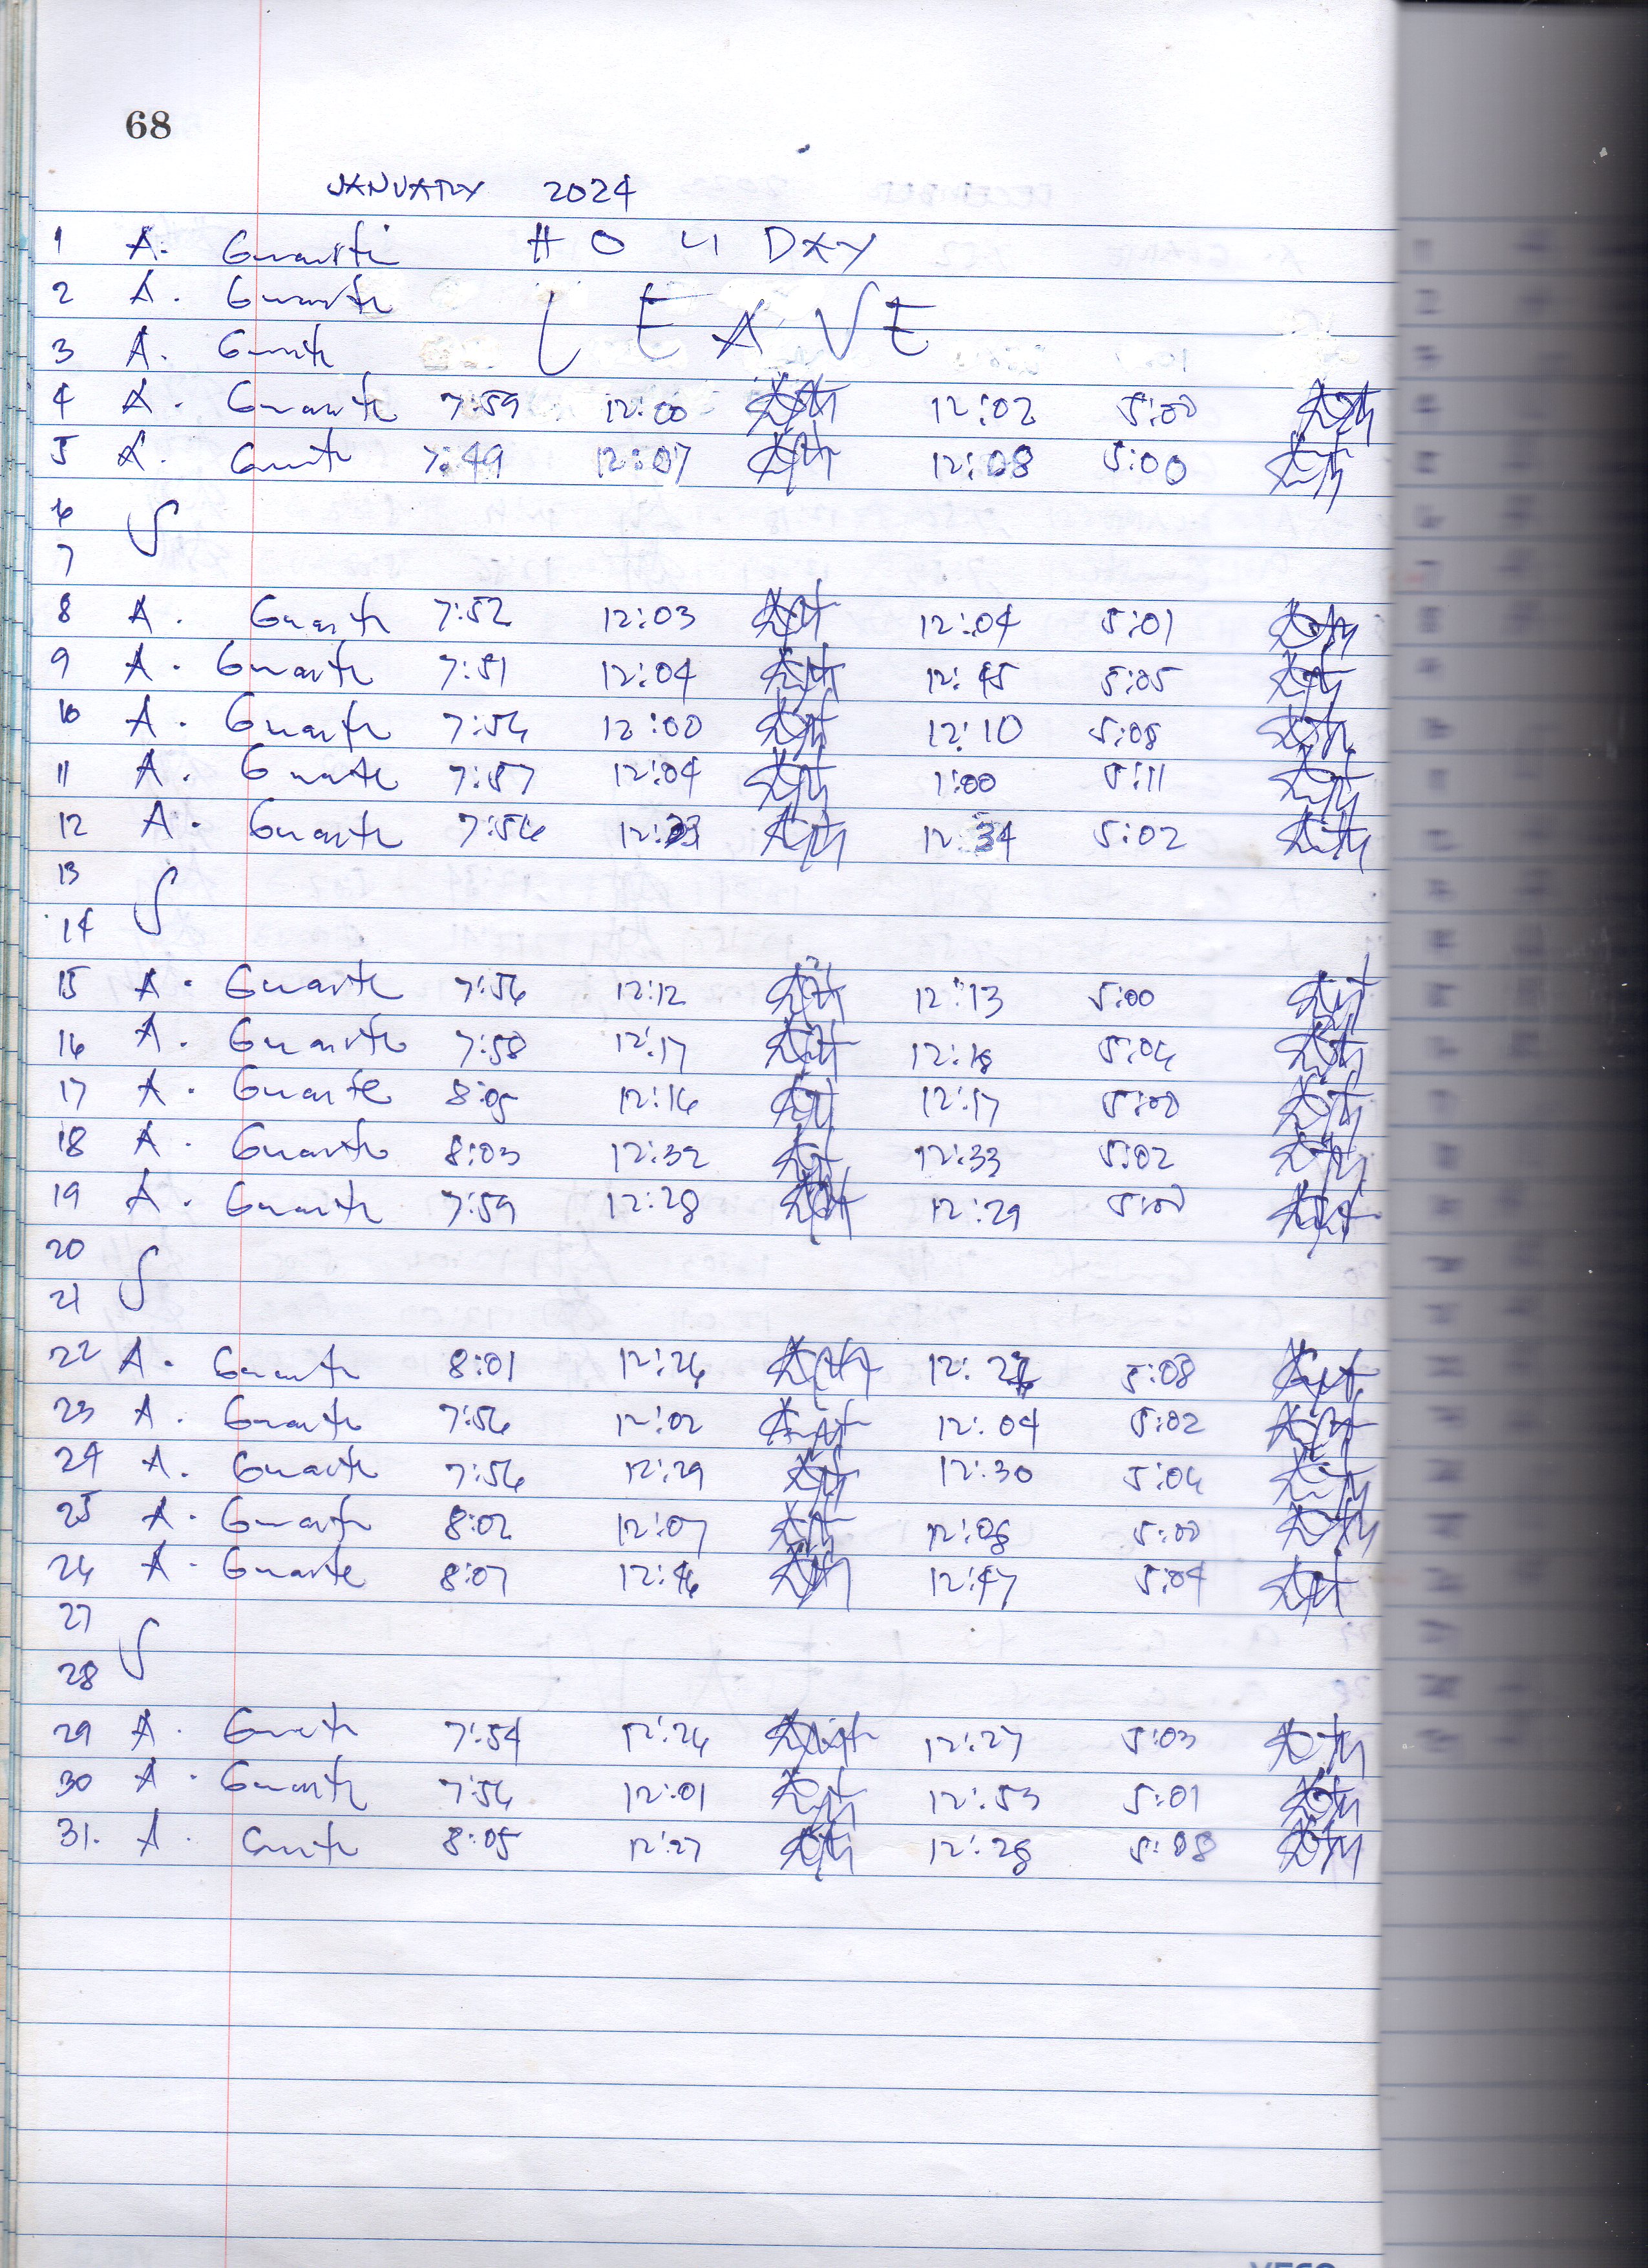 68
JANUARY 2024
1 A. Guarte HOLIDAY
2 A. Guarte LEAVE
3 A. Guarte
4 A. Guarte 7:59 12:00 12:02 5:00
5 A. Guarte 7:49 12:07 12:08 5:00
6 S
7
8 A. Guarte 7:52 12:03 12:04 5:01
9 A. Guarte 7:51 12:04 12:45 5:05
10 A. Guarte 7:56 12:00 12:10 5:08
11 A. Guarte 7:57 12:04 1:00 5:11
12 A. Guarte 7:56 12:33 12:34 5:02
13 S
14
15 A. Guarte 7:56 12:12 12:13 5:00
16 A. Guarte 7:58 12:17 12:18 5:06
17 A. Guarte 8:05 12:16 12:17 5:00
18 A. Guarte 8:03 12:32 12:33 5:02
19 A. Guarte 7:59 12:28 12:29 5:00
20 S
21
22 A. Guarte 8:01 12:26 12:27 5:08
23 A. Guarte 7:56 12:02 12:04 5:02
24 A. Guarte 7:56 12:29 12:30 5:06
25 A. Guarte 8:02 12:07 12:08 5:00
26 A. Guarte 8:07 12:46 12:47 5:04
27 S
28
29 A. Guarte 7:54 12:26 12:27 5:03
30 A. Guarte 7:56 12:01 12:53 5:01
31. A. Guarte 8:05 12:27 12:28 5:08